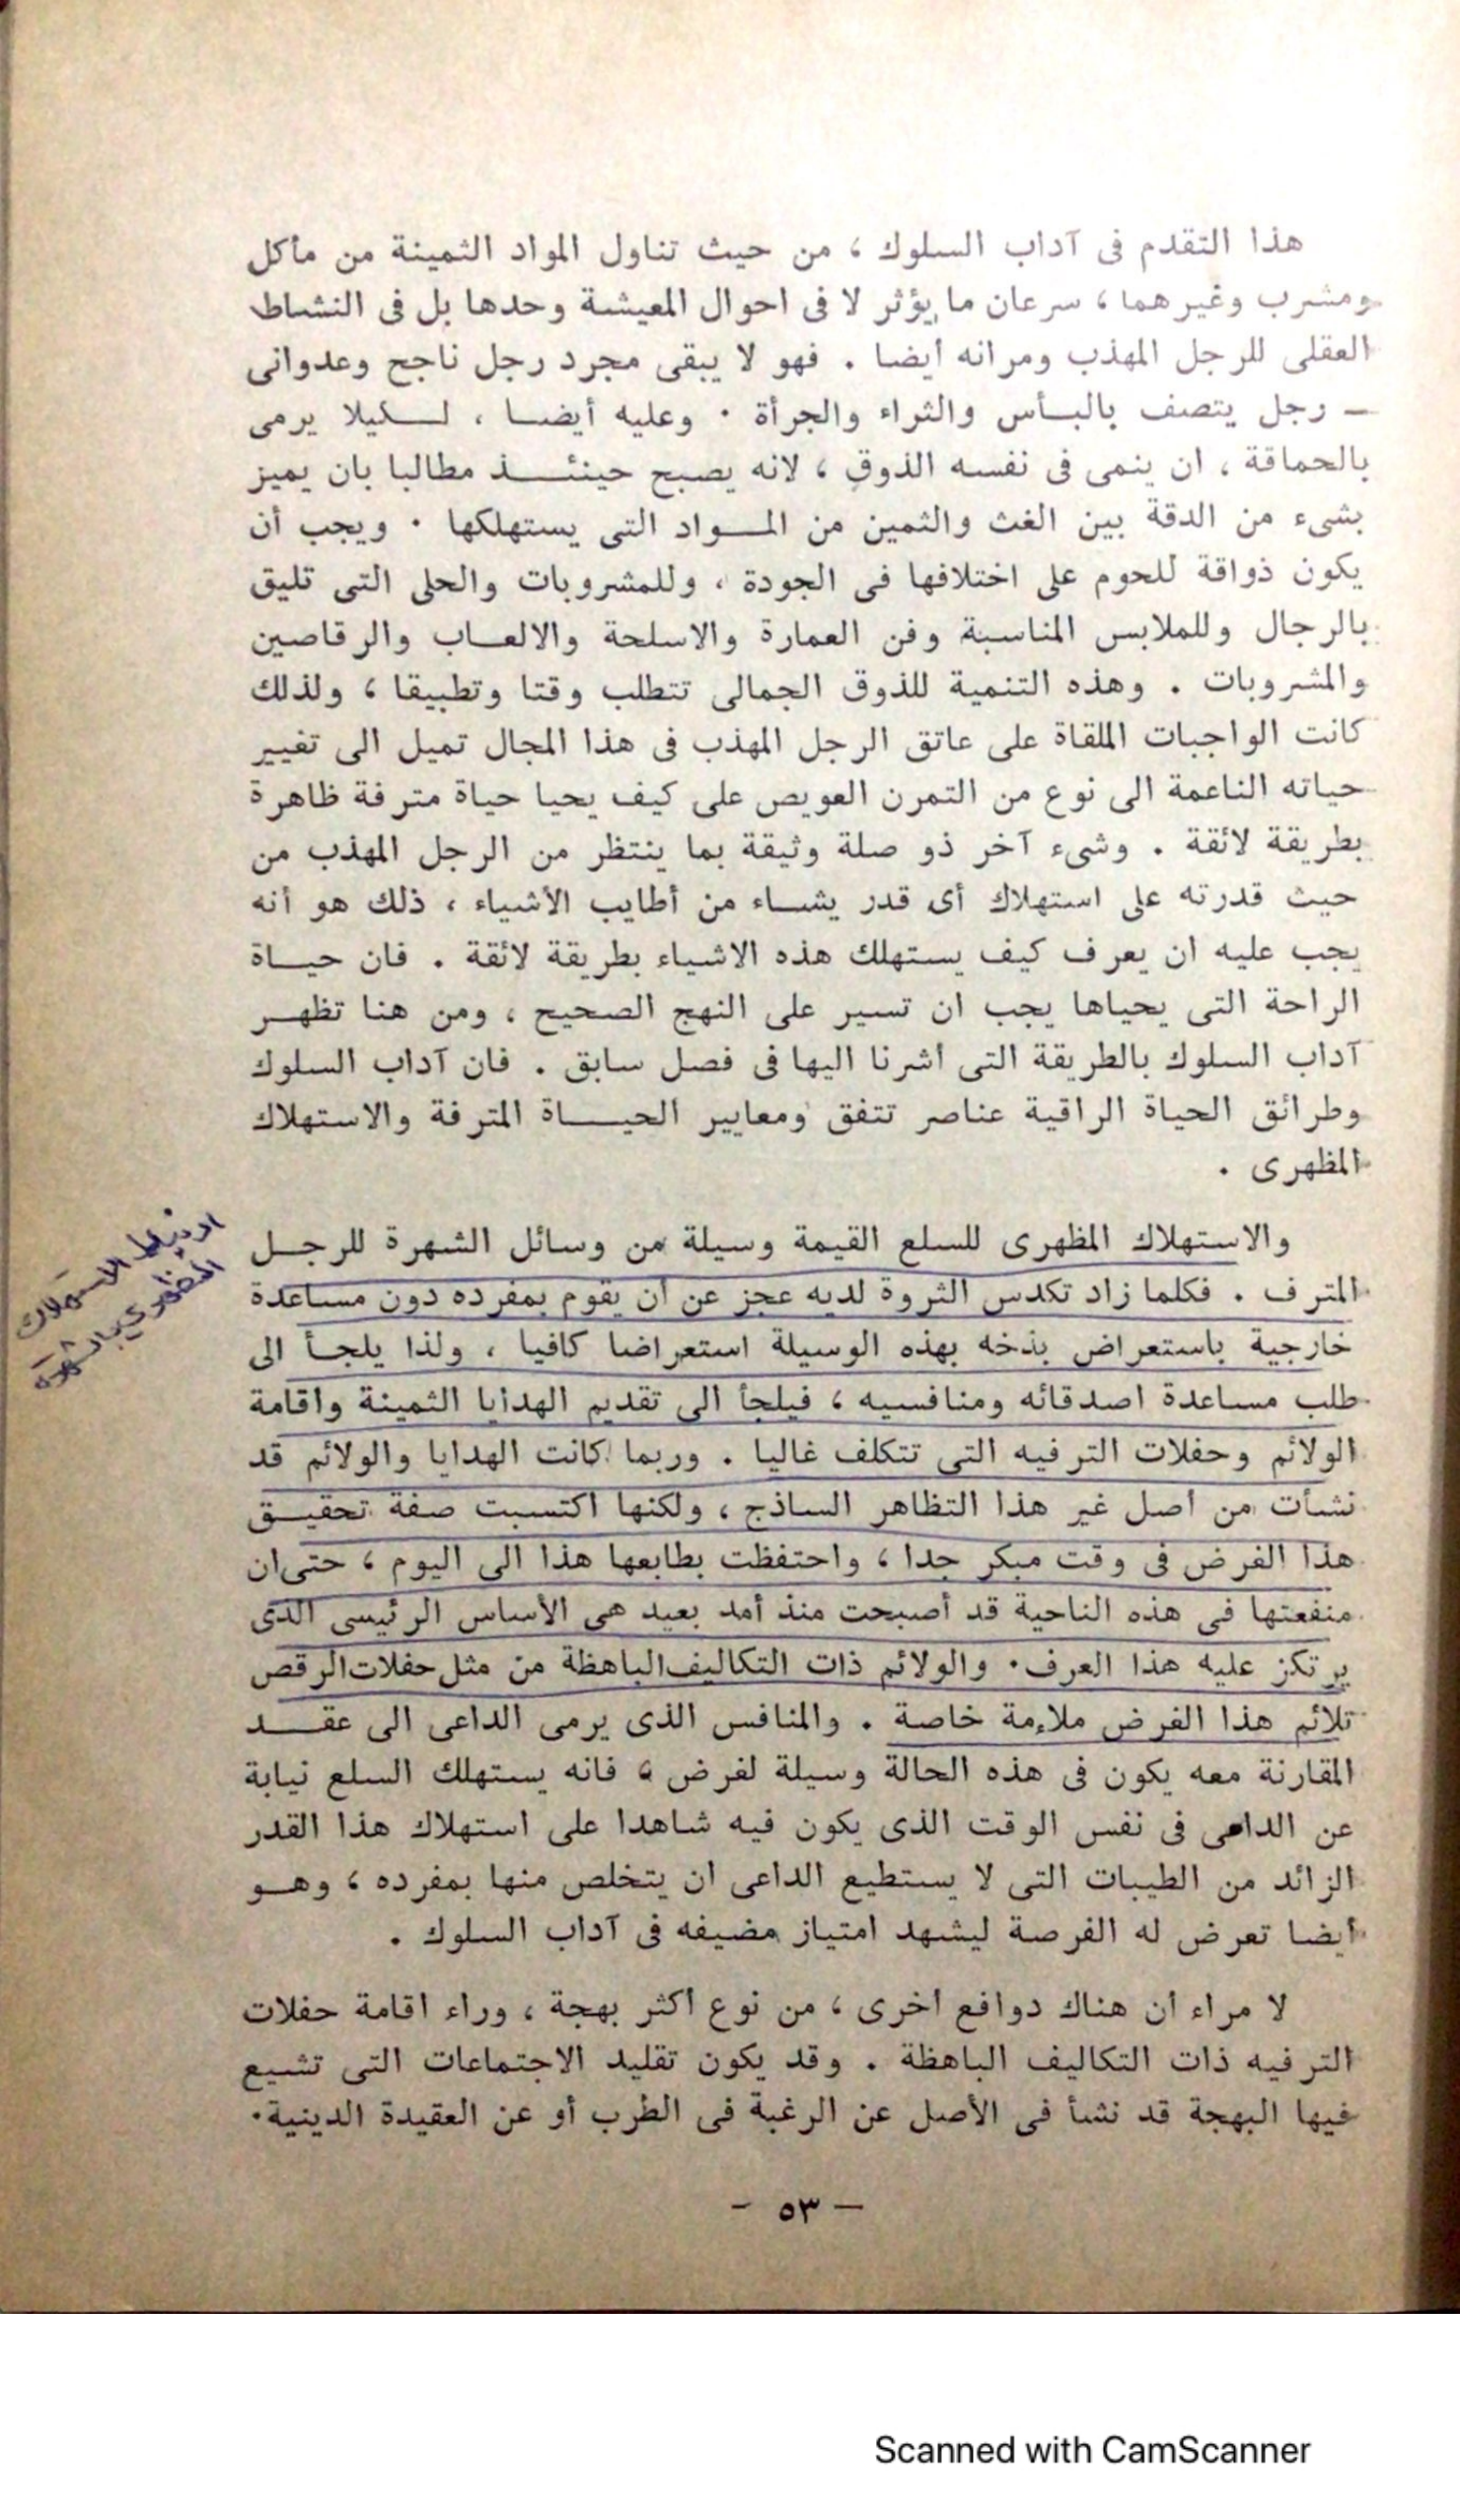 هذا التقدم فى آداب السلوك ، من حيث تناول المواد الثمينة من مأكل
ومشرب وغيرهما ، سرعان ما يؤثر لا فى احوال المعيشة وحدها بل فى النشاط
العقلى للرجل المهذب ومرانه أيضا . فهو لا يبقى مجرد رجل ناجح وعدوانى
ـ رجل يتصف بالبـأس والثراء والجرأة . وعليه أيضـا ، لـكيلا يرمى
بالحماقة ، ان ينمى فى نفسه الذوق ، لانه يصبح حينئـذ مطالبا بان يميز
بشىء من الدقة بين الغث والثمين من المـواد التى يستهلكها . ويجب أن
يكون ذواقة للحوم على اختلافها فى الجودة ، وللمشروبات والحلى التى تليق
بالرجال وللملابس المناسبة وفن العمارة والاسلحة والالعـاب والرقاصين
والمشروبات . وهذه التنمية للذوق الجمالى تتطلب وقتا وتطبيقا ، ولذلك
كانت الواجبات الملقاة على عاتق الرجل المهذب فى هذا المجال تميل الى تغيير
حياته الناعمة الى نوع من التمرن العويص على كيف يحيا حياة مترفة ظاهرة
بطريقة لائقة . وشىء آخر ذو صلة وثيقة بما ينتظر من الرجل المهذب من
حيث قدرته على استهلاك أى قدر يشـاء من أطايب الأشياء ، ذلك هو أنه
يجب عليه ان يعرف كيف يستهلك هذه الاشياء بطريقة لائقة . فان حيـاة
الراحة التى يحياها يجب ان تسير على النهج الصحيح ، ومن هنا تظهـر
آداب السلوك بالطريقة التى اشرنا اليها فى فصل سابق . فان آداب السلوك
وطرائق الحياة الراقية عناصر تتفق ومعايير الحيـاة المترفة والاستهلاك
المظهرى .
والاستهلاك المظهرى للسلع القيمة وسيلة من وسائل الشهرة للرجـل
المترف . فكلما زاد تكدس الثروة لديه عجز عن ان يقوم بمفرده دون مساعدة
خارجية باستعراض بذخه بهذه الوسيلة استعراضا كافيا ، ولذا يلجـأ الى
طلب مساعدة اصدقائه ومنافسيه ، فيلجأ الى تقديم الهدايا الثمينة واقامة
الولائم وحفلات الترفيه التى تتكلف غاليا . وربما كانت الهدايا والولائم قد
نشأت من اصل غير هذا التظاهر الساذج ، ولكنها اكتسبت صفة تحقيـق
هذا الغرض فى وقت مبكر جدا ، واحتفظت بطابعها هذا الى اليوم ، حتى ان
منفعتها فى هذه الناحية قد أصبحت منذ أمد بعيد هى الأساس الرئيسى الذى
يرتكز عليه هذا العرف . والولائم ذات التكاليف الباهظة من مثل حفلات الرقص
تلائم هذا الغرض ملاءمة خاصة . والمنافس الذى يرمى الداعى الى عقـد
المقارنة معه يكون فى هذه الحالة وسيلة لغرض ، فانه يستهلك السلع نيابة
عن الداعى فى نفس الوقت الذى يكون فيه شاهدا على استهلاك هذا القدر
الزائد من الطيبات التى لا يستطيع الداعى ان يتخلص منها بمفرده ، وهـو
أيضا تعرض له الفرصة ليشهد امتياز مضيفه فى آداب السلوك .
ارتباط الاستهلاك
المظهري بالشهرة
لا مراء ان هناك دوافع اخرى ، من نوع اكثر بهجة ، وراء اقامة حفلات
الترفيه ذات التكاليف الباهظة . وقد يكون تقليد الاجتماعات التى تشيع
فيها البهجة قد نشأ فى الأصل عن الرغبة فى الطرب أو عن العقيدة الدينية .
ـ ٥٣ ـ
Scanned with CamScanner